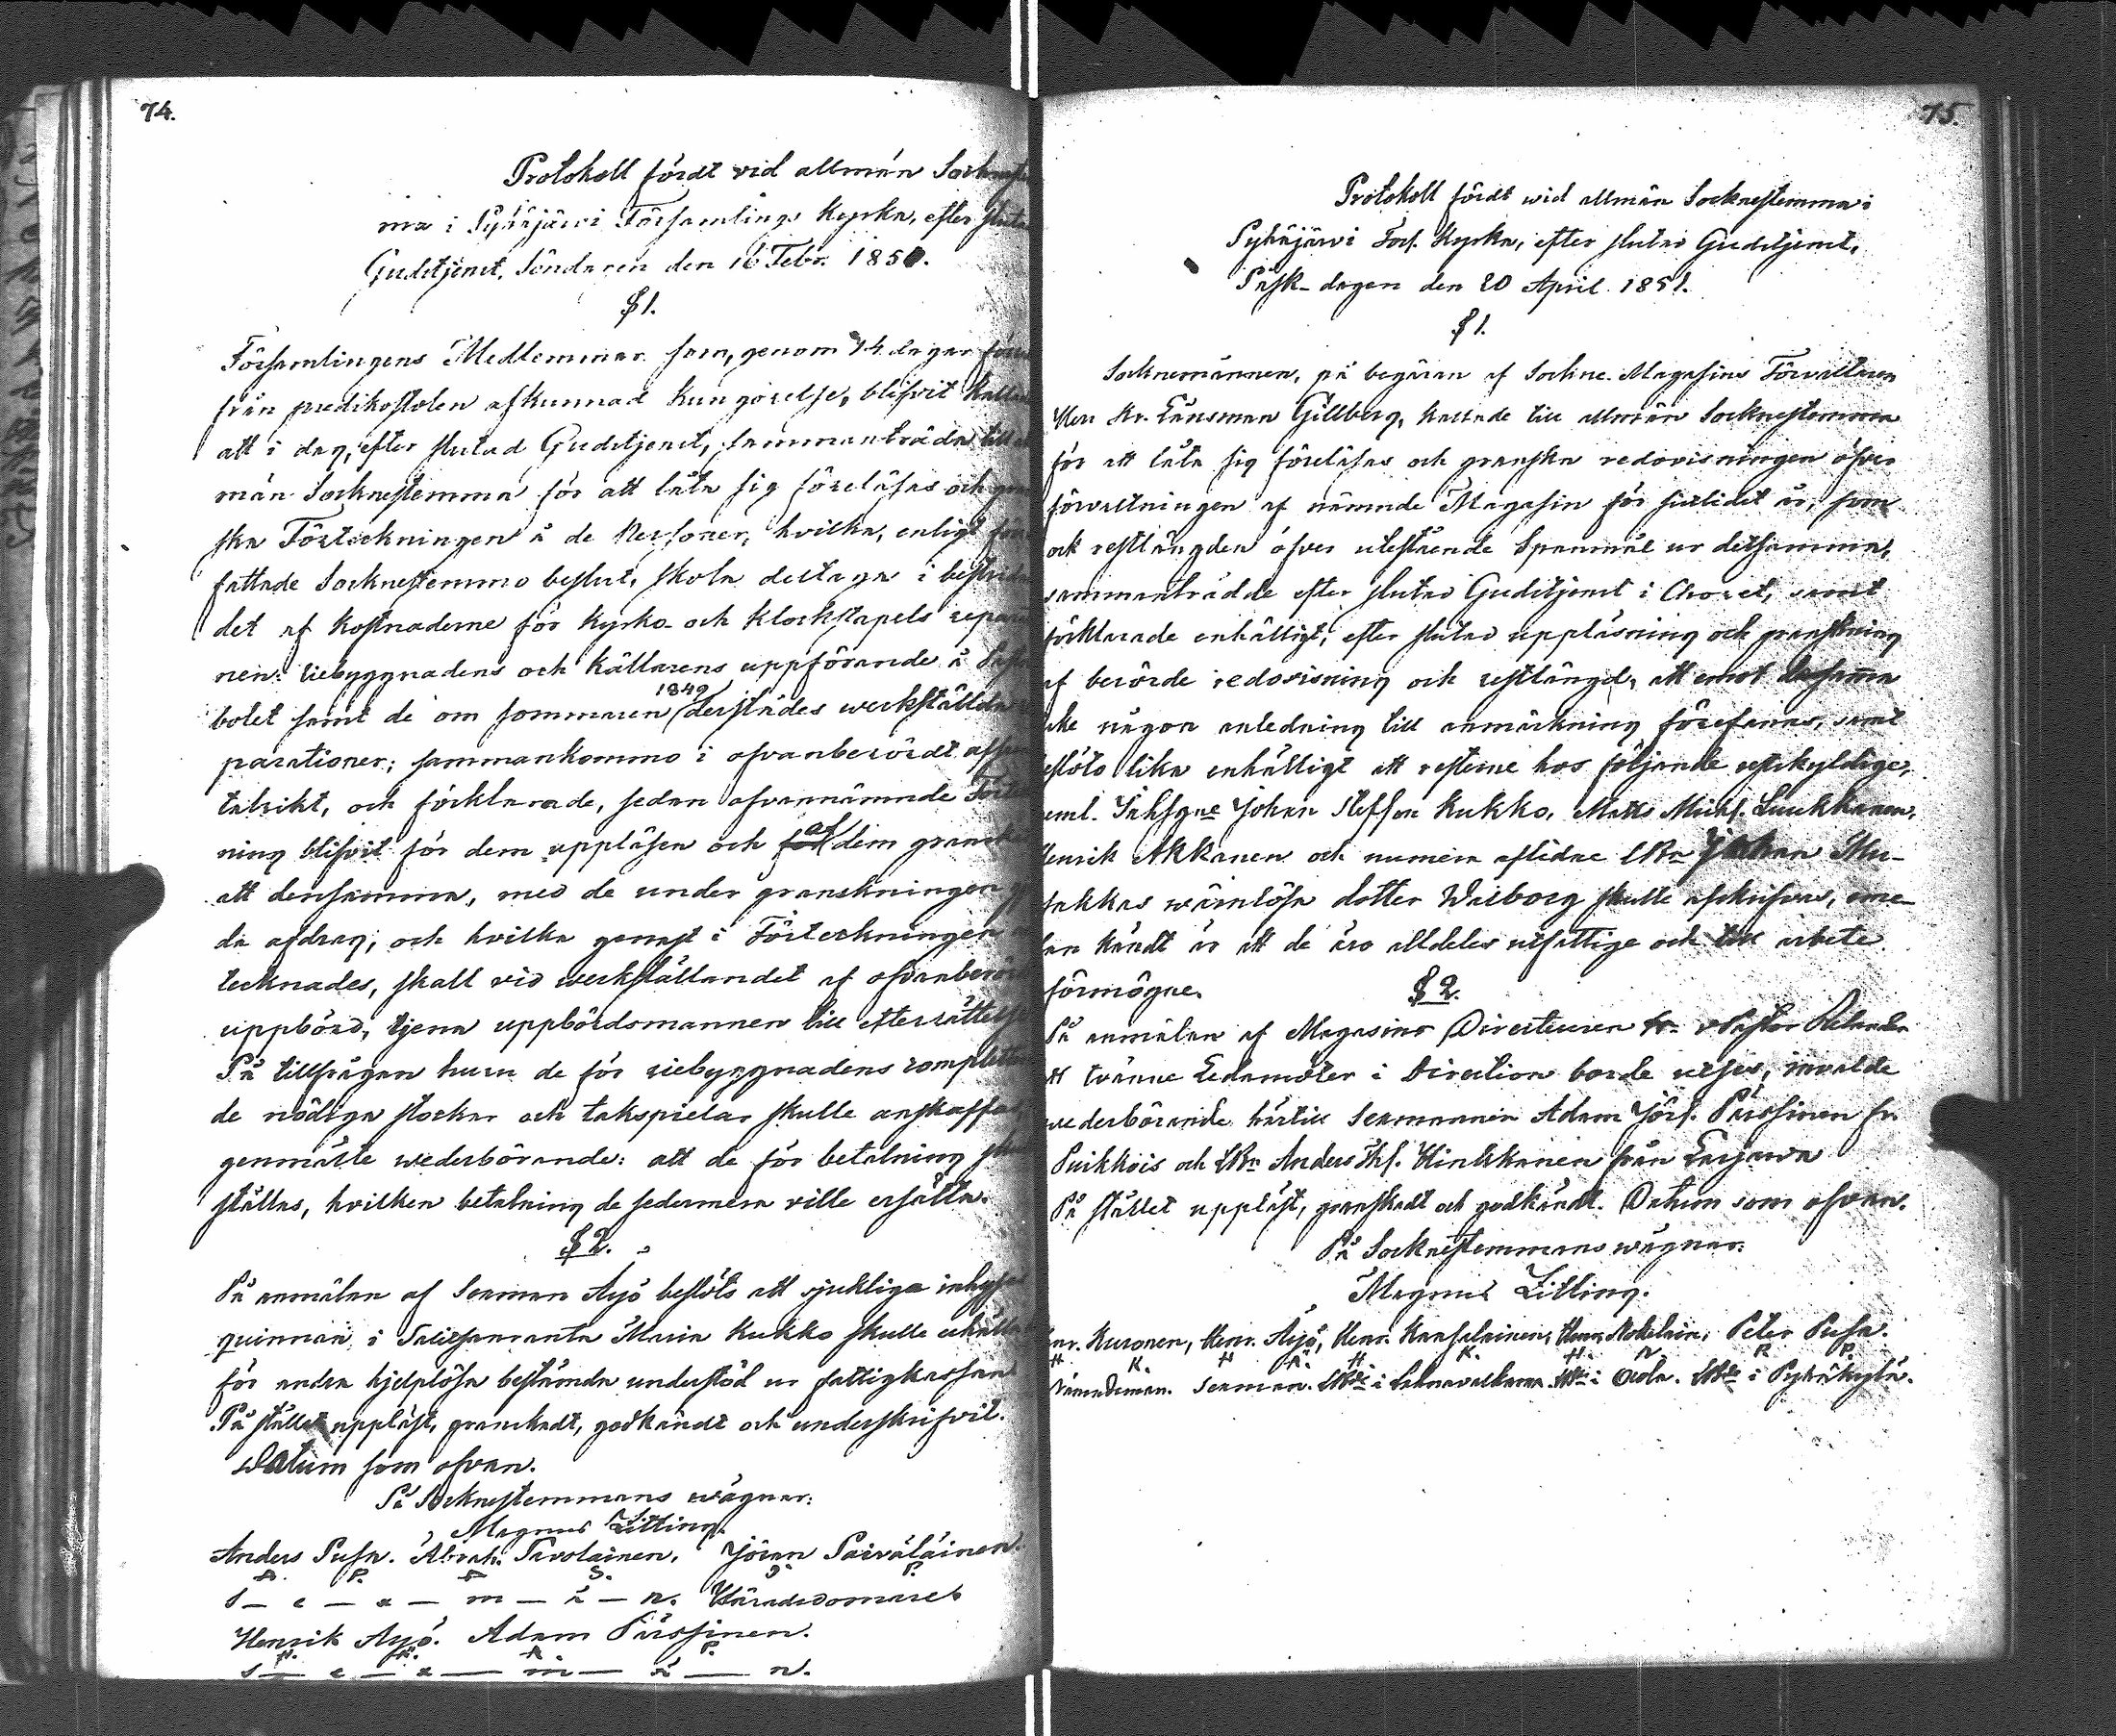 74.
Protokoll fördt vid allmän Sockneste
ma i Pyhäjärvi Församlings Kyrka, efter sluta
Gudstjenst, Söndagen den 16 Febr. 1850.
§ 1.
Församlingens Medlemmar som, genom 14 dagar föru
från predikostolen afkunnad Kungörelse, blifvit Kalla
att i dag, efter slutad Gudstjenst, sammanträda till al
män Socknestemma för att låta sig föreläsas och gran
ska Förteckningen å de Personer, hvilka, enligt före
fattade Socknestemmo beslut, skola deltaga i bestridan
det af kostnaderne för Kyrko- och Klockstapels repara
nen: riebyggnadens och Källarens uppförande å
bolet samt de om sommaren 1849 derstädes werkställda
parationer; sammankommo i ofvanberördt afse
talrikt, och förklarade, sedan ofvannämnde För
ning blifvit för dem uppläsen och af dem gransk
att densamma, med de under granskningen
da afdrag, och hvilka genast i Förteckningen
tecknades, skall vid werkställandet af ofvanberör
uppbörd, tjena uppbördsmannen till efterrättelse
På tillfrågan huru de för riebyggnadens complett
de nödiga stockar och takspielar skulle anskaffas
genmälte wederbörande: att de för betalning
ställas, hvilken betalning de sedermera ville ersätta.
§ 2.
På anmälan af Sexman Äyö beslöts att sjukliga inhyses
quinnan i Salitsanranta Maria Kukko skulle erhålla
för andra hjelplösa bestämda understöd ur fattigkassan
På stället uppläst, granskadt, godkändt och underskrifvit.
Datum som ofvan.
På Socknestemmans wägnar:
Magnus Litting.
Anders Pusa. Abrah. Savolainen. Jöran Päiväläinen.
A. P. A. S. J. P.
S – e – x – m – ä – n. Häradsdomare
Henrik Äyö. Adam Pärssinen.
H. Ä. A. P.
S – e – x – m – ä – n.
75.
Protokoll fördt wid allmän Socknestemma i
Pyhäjärvi Förs. Kyrka, efter slutad Gudstjenst,
Påsk-dagen den 20 April 1851.
§ 1.
Socknemännen, på begäran af Sockne-Magasins Förvaltaren
Herr Kr. Länsman Gillberg, kallade till allmän Socknestemma
för att låta sig föreläsas och granska redovisningen öfver
förvaltningen af nämnde Magasin för sistlidet år, som
ock restlängden öfver utestående Spanmål ur detsamma,
sammanträdde efter slutad Gudstjenst i Choret, samt
förklarade enhälligt, efter slutad uppläsning och granskning
af berörde redovisning och restlängd, att emot desamma
icke någon anledning till anmärkning förefanns, samt
eslöto lika enhälligt att resterne hos följande restskyldige,
eml. Johan Steffan Kukko, Matts Michs. Luukkanen,
Henrik Akkanen och numera aflidne Johan
akkas wärnlösa dotter Walborg skulle afskrifvas, eme-
an kändt är att de äro alldeles utfattige och till arbete
förmögne.
§ 2.
På anmälan af Magasins Directeuren Hr. v Pastor Relander
tt tvänne Ledamöter i Direction borde utses, invalde
wederbörande härtill Sexmannen Adam Jörs. Pärssinen fr.
Puikkois och Anders Hinkkanen från Larjawa
På stället uppläst, granskadt och godkändt. Datum som ofvan.
På Socknestemmans wägnar:
Magnus Litting.
nr. Kuronen, Henr. Äyö, Henr. Kansalainen, Henr. Peter Pusa.
H. K. H. Ä. H. K. H. P. P.
Nämndeman. Sexman. i i i Pyhäkylä.